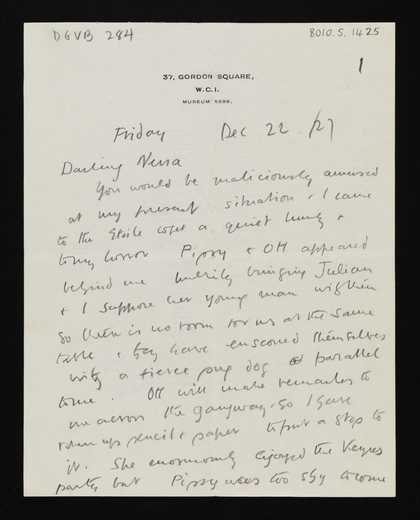 DGVB 284
8010.5.1425
1
37, GORDON SQUARE,
W.C.1.
MUSEUM
Friday Dec 22 /27
Darling Nessa
You would be maliciously amused
at my present situation & I came
to the Etoile to get a quiet lunch &
to my horror Pipsy & Ott appeared
behind me bringing Julian
& I suppose her young man with them
So there is no room for us at the same
table & they have ensconced themselves
with a fierce pug dog parallel
to me. Ott will make remarks to
me across the gangway. So I have
pencil & paper to put a stop to
it. She enormously enjoyed the Keynes
party but Pipsy was too shy to come